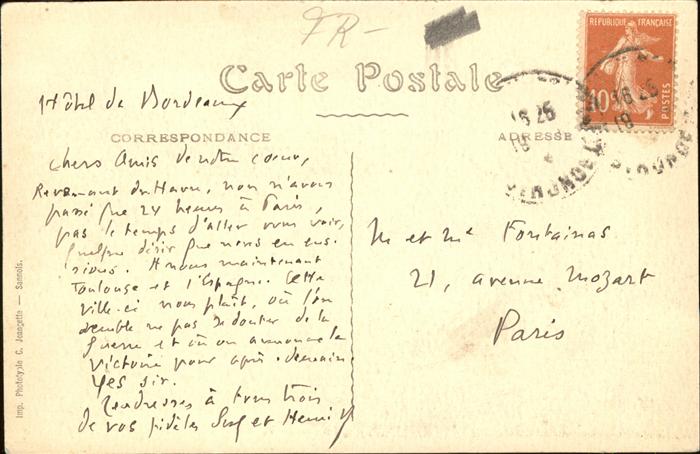 FR-
Carte Postale
Hôtel de Bordeaux
CORRESPONDANCE
Chers Amis de notre coeur,
Revenant du Havre, nous n'avons
passé que 24 heures à Paris,
pas le temps d'aller vous voir,
quelque désir que nous en eus-
sions. A nous maintenant
Toulouse et l'Espagne. Cette
ville-ci nous plaît, où l'on
semble ne pas se douter de la
guerre et où on annonce la
Victoire pour après-demain.
Yes sir.
Tendresses à tous trois
de vos fidèles et Henri
ADRESSE
M et Me Fontainas
21, avenue Mozart
Paris
REPUBLIQUE FRANÇAISE
10c
POSTES
16 26
18
16 26
18
Imp. Phototypie C. Jeangette — Sannois.